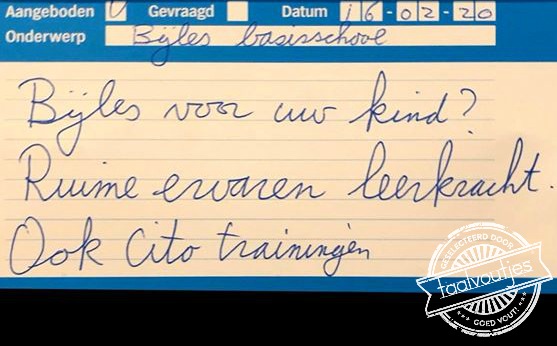 Aangeboden Gevraagd Datum 16-02-20
Onderwerp Bijles basisschool
Bijles voor uw kind?
Ruime ervaren leerkracht.
Ook Cito trainingen
GESELECTEERD DOOR
taalvoutjes
GOED VOUT!